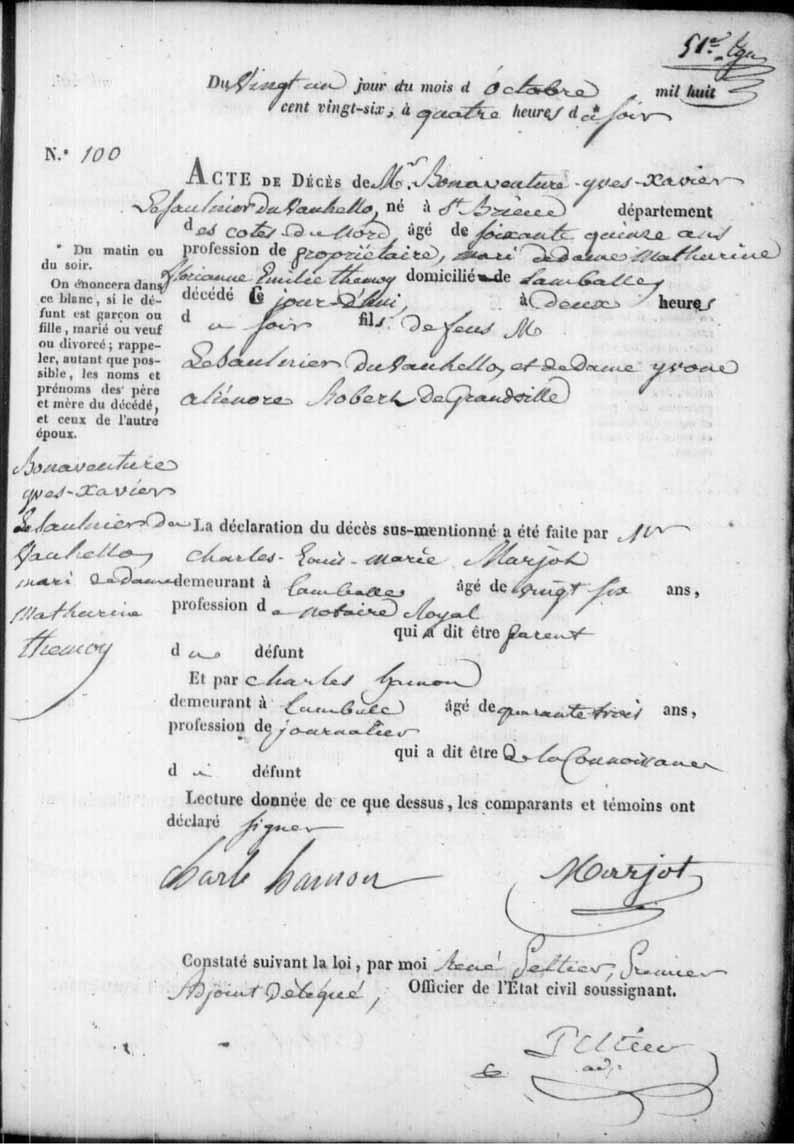 51e
Du Vingt un jour du mois d'octobre mil huit
cent vingt-six, à quatre heures du * soir
N.° 100
ACTE DE DÉCÈS de Mr. Bonaventure-yves-xavier
Le Saulnier du Vauhello, né à St Brieuc département
des cotes du Nord, âgé de soixante quinze ans
profession de propriétaire, mari de dame Mathurine
florianne Emilie themoy domicilié de Lamballe,
décédé ce jour-d'hui, à deux heures
du soir fils de feus M
Le Saulnier du Vauhello, et de dame yvone
aliénore Robert de Grandville
* Du matin ou
du soir.
On énoncera dans
ce blanc, si le dé-
funt est garçon ou
fille, marié ou veuf
ou divorcé; rappe-
ler, autant que pos-
sible, les noms et
prénoms des père
et mère du décédé,
et ceux de l'autre
époux.
Bonaventure
yves-xavier
Le Saulnier du
Vauhello
mari de dame
Mathurine
themoy
La déclaration du décès sus-mentionné a été faite par Mr
charles-Louis-marie Marjot
demeurant à Lamballe âgé de vingt six ans,
profession de notaire Royal
qui a dit être parent
du défunt
Et par charles hamon
demeurant à Lamballe âgé de quarante trois ans,
profession de journalier
qui a dit être De la Connoissance
du défunt
Lecture donnée de ce que dessus, les comparants et témoins ont
déclaré signer
charle hamon
Marjot
Constaté suivant la loi, par moi René Peltier, Premier
Adjoint Délégué, Officier de l'État civil soussigant.
Peltier
adj.